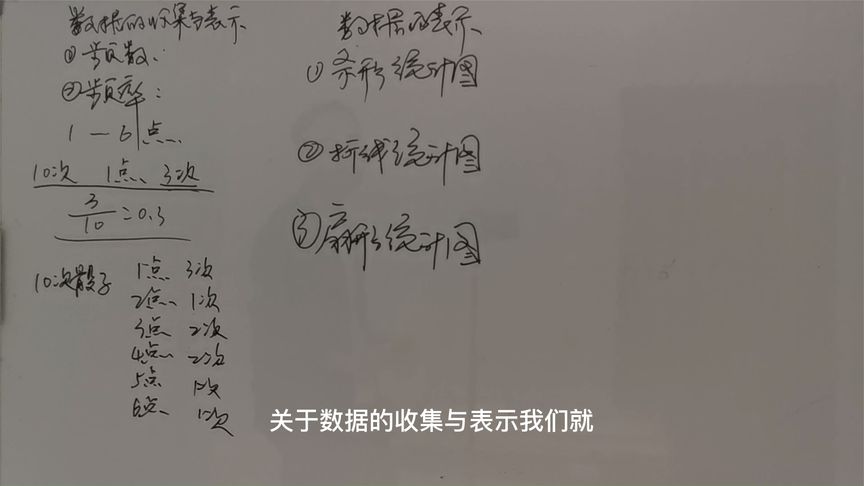 数据的收集与表示
①频数:
②频率:
1—6点
10次 1点 3次
3/10=0.3
10次骰子 1点 3次
2点 1次
3点 2次
4点 2次
5点 1次
6点 1次
数据的表示
①条形统计图
②折线统计图
③扇形统计图
关于数据的收集与表示我们就